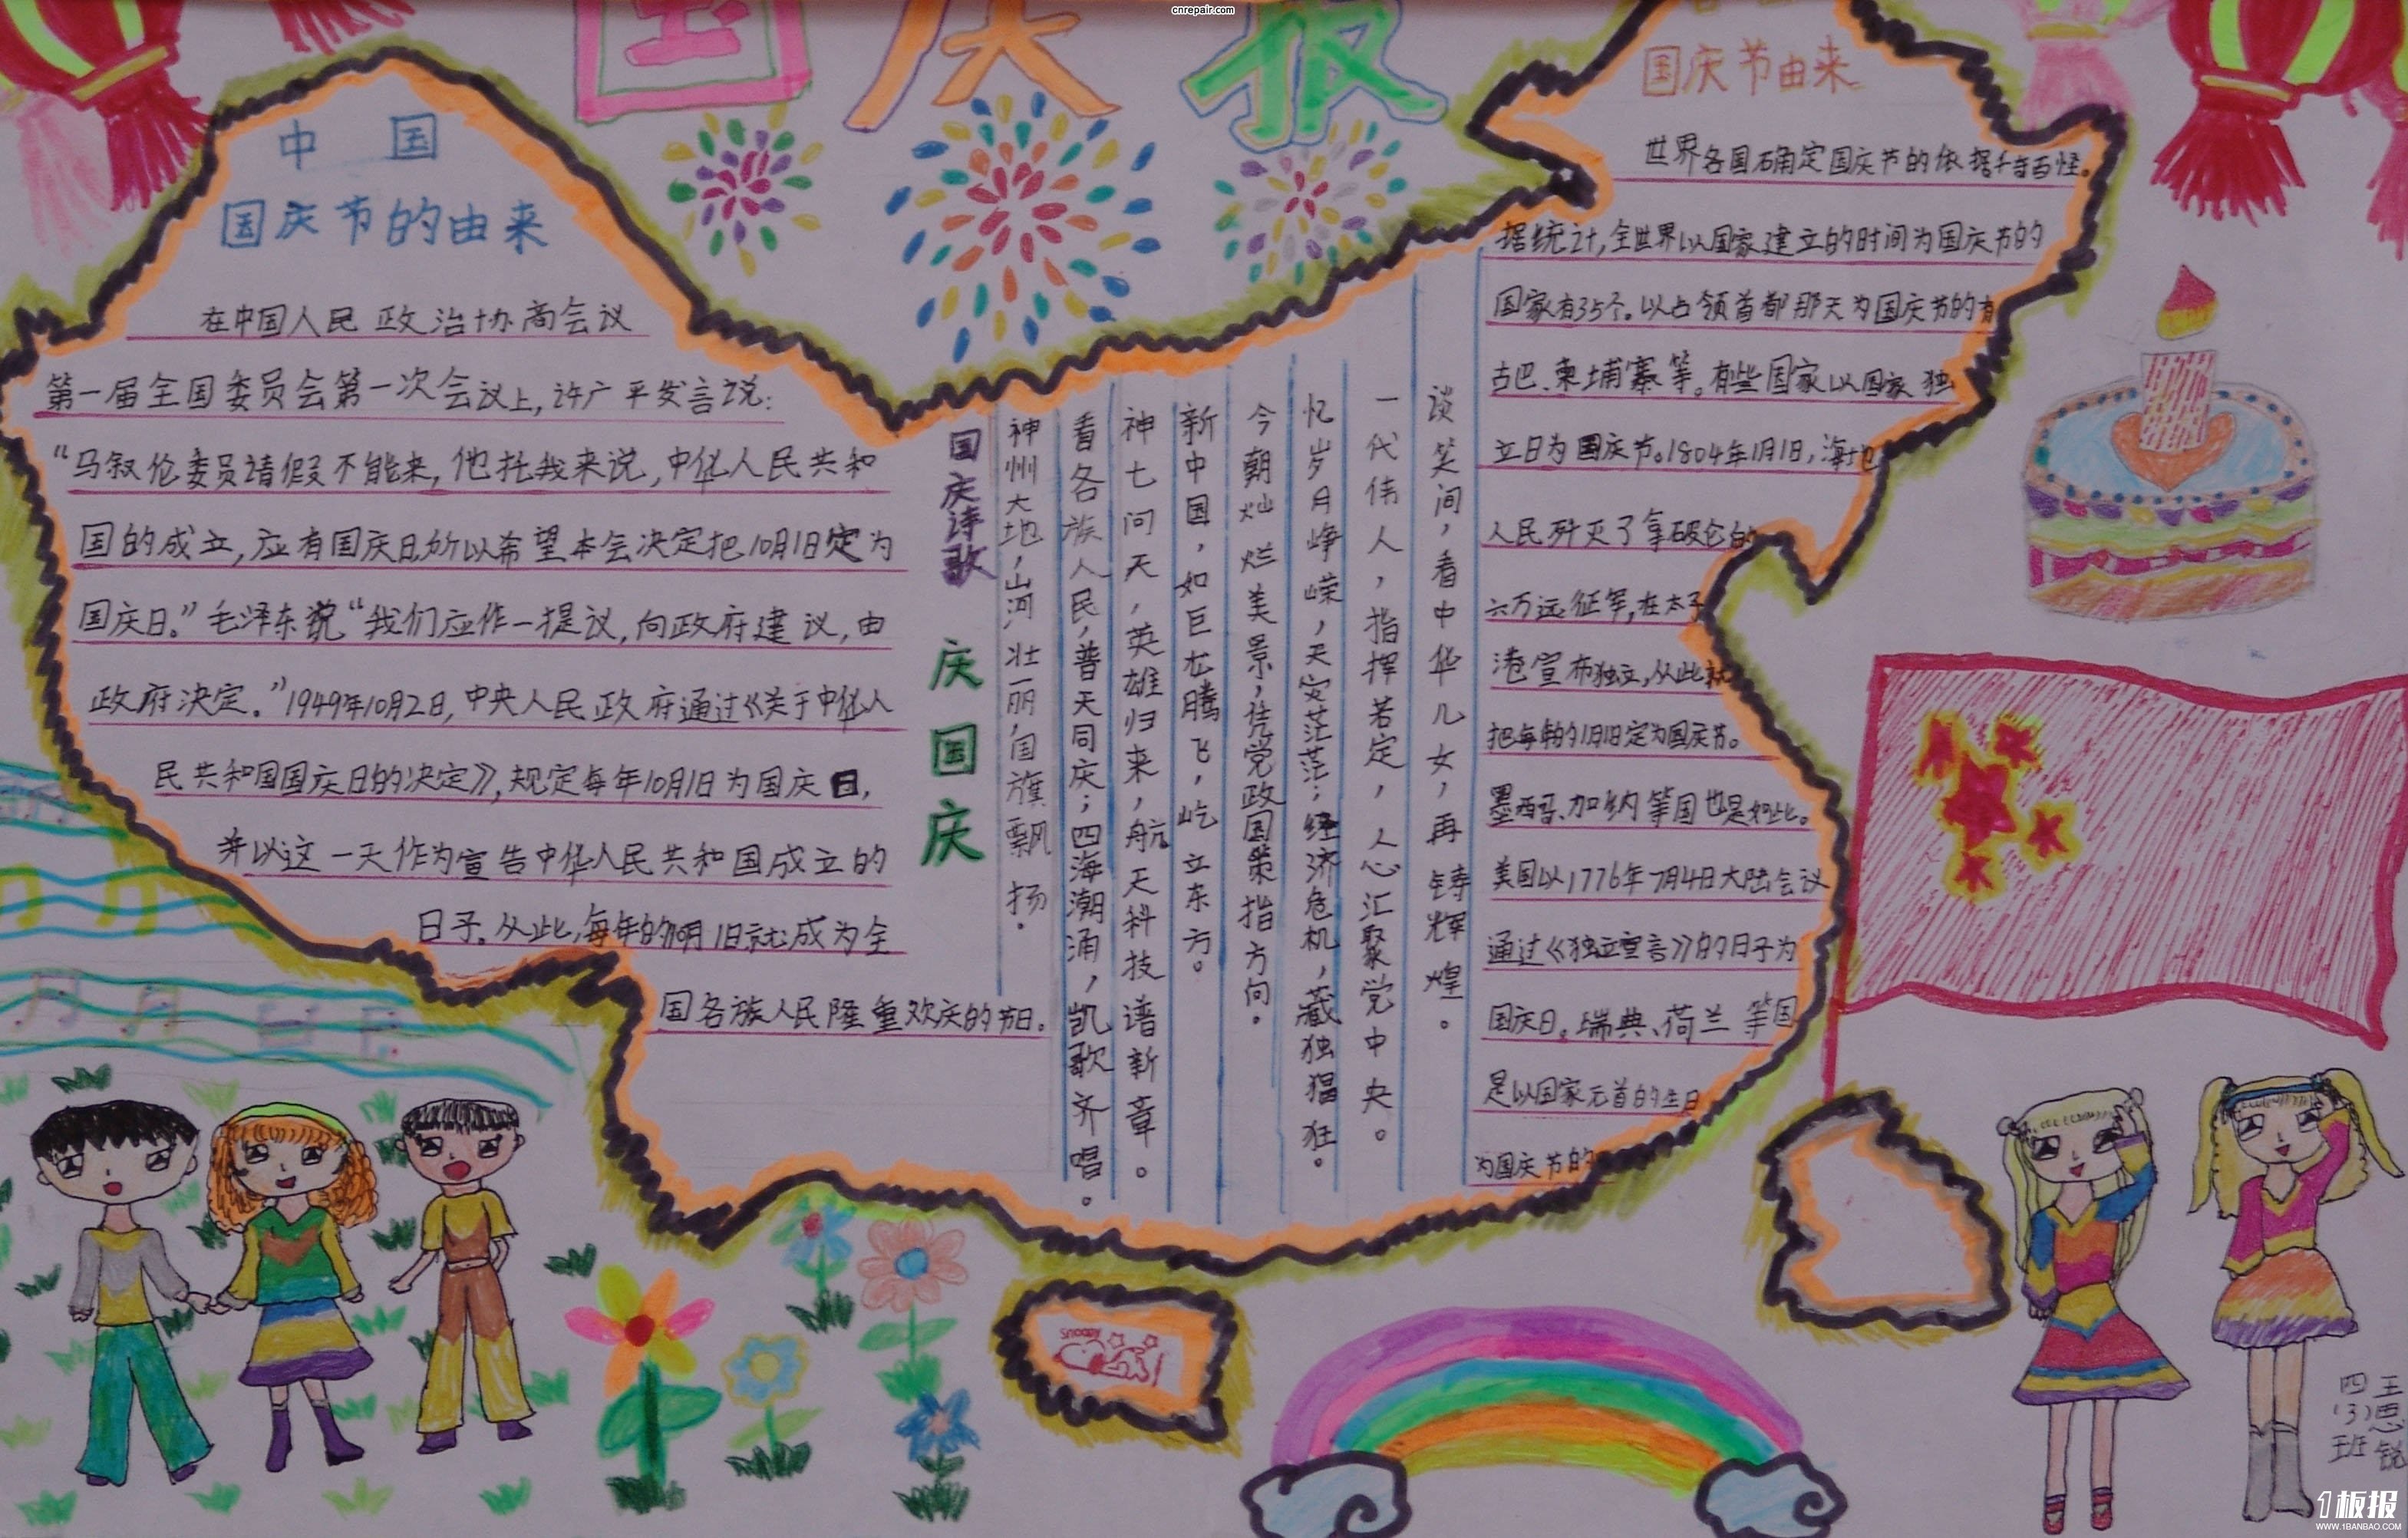 cnrepair.com
国庆报
中 国
国庆节的由来
在中国人民政治协商会议
第一届全国委员会第一次会议上,许广平发言说:
“马叙伦委员请假不能来,他托我来说,中华人民共和
国的成立,应有国庆日,所以希望本会决定把10月1日定为
国庆日。”毛泽东说“我们应作一提议,向政府建议,由
政府决定。”1949年10月2日,中央人民政府通过《关于中华人
民共和国国庆日的决定》,规定每年10月1日为国庆日,
并以这一天作为宣告中华人民共和国成立的
日子。从此,每年的10月1日就成为全
国各族人民隆重欢庆的节日。
国庆诗歌 庆国庆
神州大地,山河壮丽,国旗飘扬。
看各族人民,普天同庆;四海潮涌,凯歌齐唱。
神七问天,英雄归来,航天科技谱新章。
新中国,如巨龙腾飞,屹立东方。
今朝灿烂美景,凭党政国策指方向。
忆岁月峥嵘,天安茫茫;经济危机,藏独猖狂。
一代伟人,指挥若定,人心汇聚党中央。
谈笑间,看中华儿女,再铸辉煌。
国庆节由来
世界各国确定国庆节的依据千奇百怪。
据统计,全世界以国家建立的时间为国庆节的
国家有35个。以占领首都那天为国庆节的有
古巴、柬埔寨等。有些国家以国家独
立日为国庆节。1804年1月1日,海地
人民歼灭了拿破伦的
六万远征军,在太子
港宣布独立,从此就
把每年的1月1日定为国庆节。
墨西哥、加纳等国也是如此。
美国以1776年7月4日大陆会议
通过《独立宣言》的日子为
国庆日。瑞典、荷兰等国
是以国家元首的生日
为国庆节的
Snoopy
四(3)班
王思锐
1板报
WWW.1BANBAO.COM